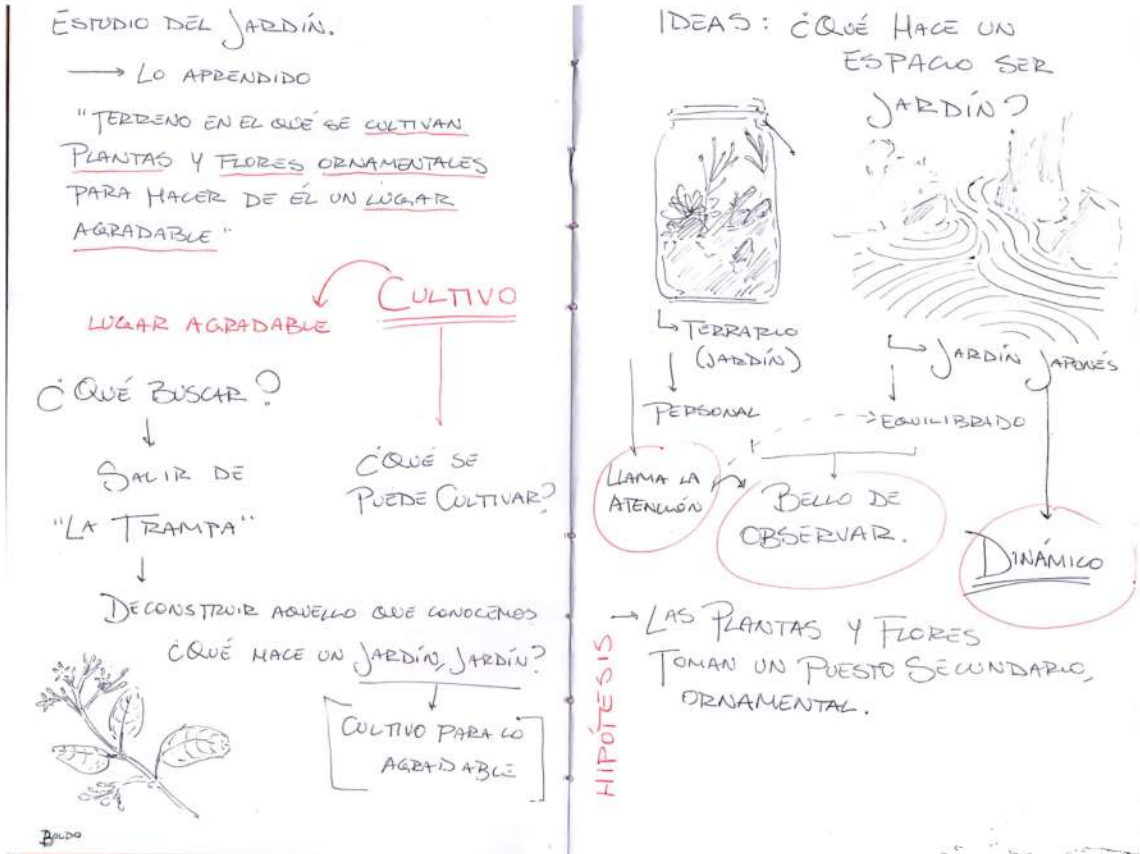 ESTUDIO DEL JARDÍN.
→ LO APRENDIDO
"TERRENO EN EL QUÉ SE CULTIVAN
PLANTAS Y FLORES ORNAMENTALES
PARA HACER DE ÉL UN LUGAR
AGRADABLE"
CULTIVO
LUGAR AGRADABLE
¿QUÉ BUSCAR?
SALIR DE
"LA TRAMPA"
¿QUÉ SE
PUEDE CULTIVAR?
DECONSTRUIR AQUELLO QUE CONOCEMOS
¿QUÉ HACE UN JARDÍN, JARDÍN?
CULTIVO PARA LO
AGRADABLE
BOLDO
IDEAS: ¿QUÉ HACE UN
ESPACIO SER
JARDÍN?
TERRARIO
(JARDÍN)
PERSONAL
JARDÍN JAPONÉS
EQUILIBRADO
LLAMA LA
ATENCIÓN
BELLO DE
OBSERVAR.
DINÁMICO
HIPÓTESIS
→ LAS PLANTAS Y FLORES
TOMAN UN PUESTO SECUNDARIO,
ORNAMENTAL.